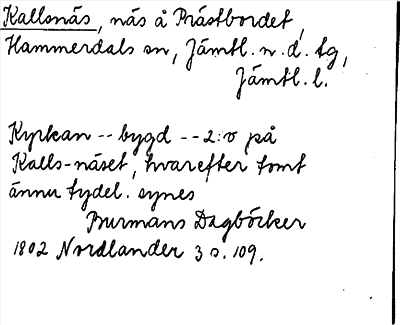 Kallsnäs, näs å Prästbordet,
Hammerdals sn, Jämtl. n. d. tg,
Jämtl. l.
Kyrkan -- bygd -- 2:o på
Kalls-näset, hvarefter tomt
ännu tydel. synes
Burmans Dagböcker
1802 Nordlander 3 s. 109.